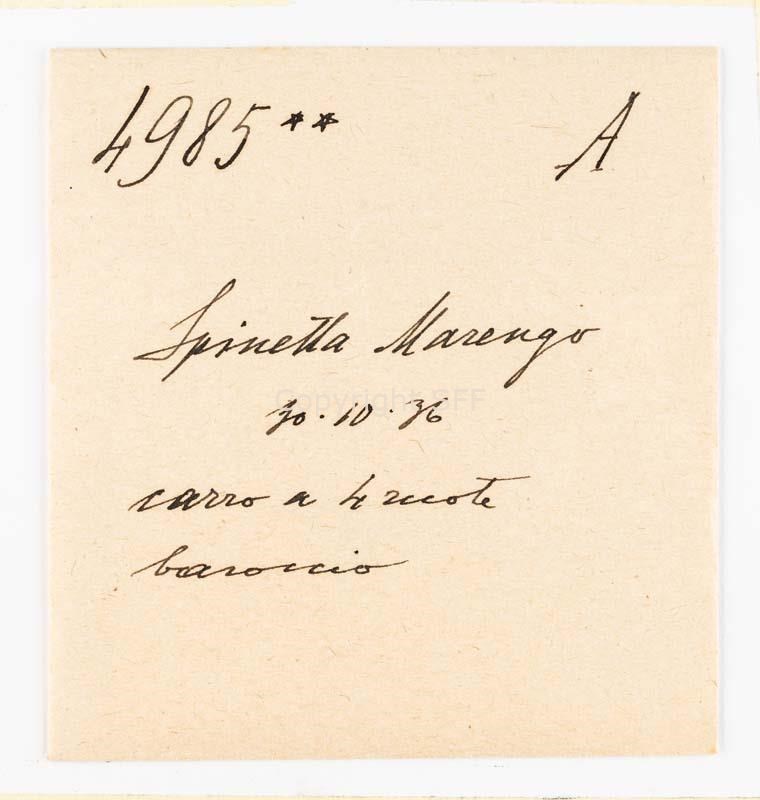 4985** A
Spinetta Marengo
Copyright BFF
30.10.36
carro a 4 ruote
baroccio